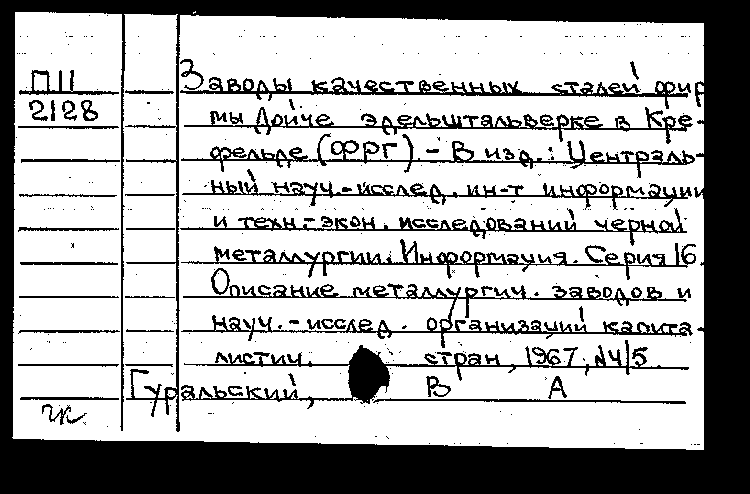 П11
2128
Заводы качественных сталей фир
мы Дойче эдельштальверке в Кре-
фельде (ФРГ) - В изд.: Централь-
ный науч.-исслед. ин-т информации
и техн.-экон. исследований черной
металлургии. Информация. Серия 16.
Описание металлургич. заводов и
науч.-исслед. организаций капита-
листич. стран, 1967, №4/5.
Гуральский, В А